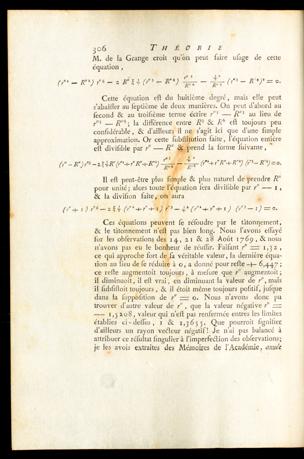 306 THÉORIE
M. de la Grange croit qu'on peut faire usage de cette
équation,
Cette équation est du huitieme degré, mais elle peut
s'abaisser au septieme de deux manières. On peut d'abord au
second & au troisieme terme écrire au lieu de
la différence entre R & R' est toujours peu
considérable, & d'ailleurs il ne s'agit ici que d'une simple
approximation. Or cette substitution faite, l'équation entiere
est divisible par r' — R' & prend la forme suivante,
Il est peut-être plus simple & plus naturel de prendre R'
pour unité; alors toute l'équation sera divisible par r' — 1,
& la division faite, on aura
Ces équations peuvent se résoudre par le tâtonnement,
& le tâtonnement n'est pas bien long. Nous l'avons essayé
sur les observations des 14, 21 & 28 Août 1769, & nous
n'avons pas eu le bonheur de réussir. Faisant r' = 1,32,
ce qui approche fort de sa véritable valeur, la derniere équa-
tion au lieu de se réduire à 0, a donné pour reste + 6,447;
ce reste augmentoit toujours, à mesure que r' augmentoit;
il diminuoit, il est vrai, en diminuant la valeur de r', mais
il subsistoit toujours, & il étoit même toujours positif, jusque
dans la supposition de r' = 0. Nous n'avons donc pu
trouver d'autre valeur de r', que la valeur négative r' =
— 1,5208, valeur qui n'est pas renfermée entre les limites
établies ci-dessus, 1 & 1,3655. Que pourroit signifier
d'ailleurs un rayon vecteur négatif? Je n'ai pas balancé à
attribuer ce résultat singulier à l'imperfection des observations;
je les avois extraites des Mémoires de l'Académie, année